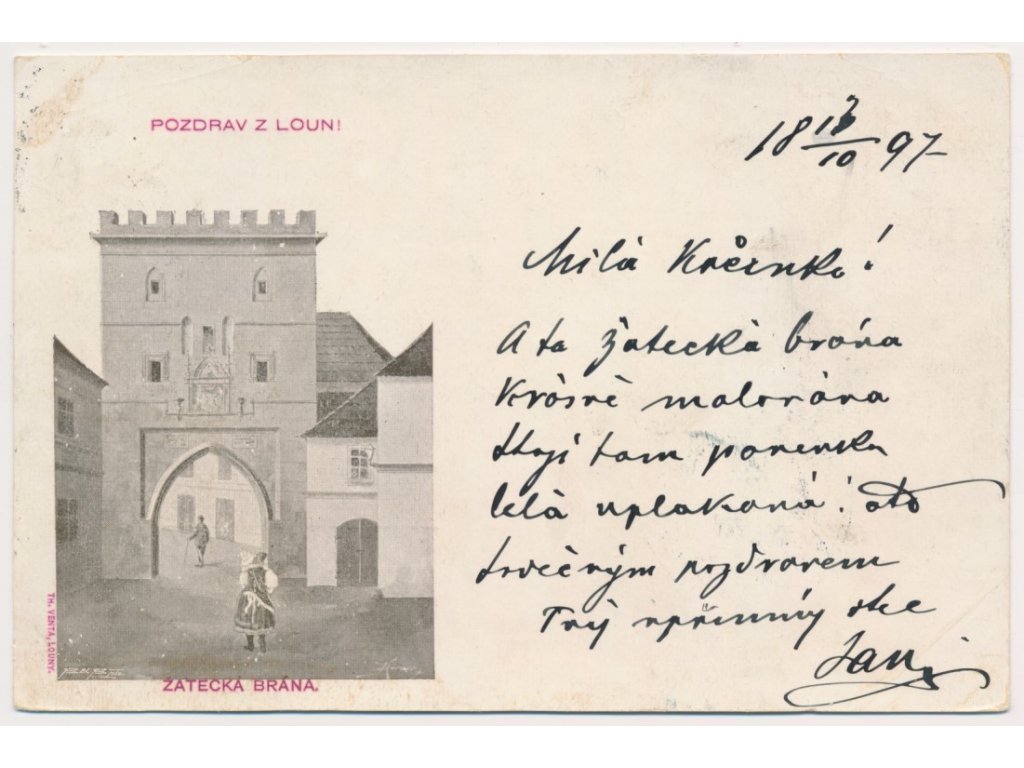 POZDRAV Z LOUN!
18 13/10 97
Milá
A ta žatecká brána
krásně malována
stojí tam panenka
celá uplakaná!
srdečným pozdravem
Tvůj upřímný
Jan
TH. VENTA, LOUNY.
ŽATECKÁ BRÁNA.